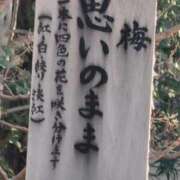 梅
思いのまま
一本に四色の花を咲き分けます
(紅・白・絞り・淡紅)